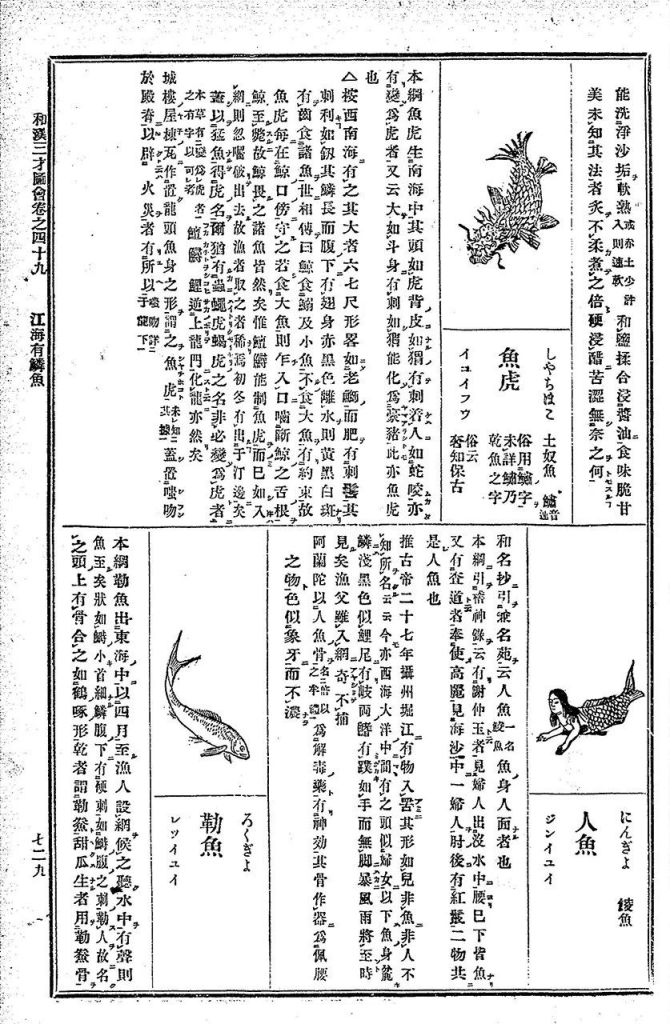 能洗淨沙垢軟熟或赤土少許入則速軟和鹽揉合浸醬油食味脆甘
美未知其法者炙不柔煮之倍硬浸醋苦澀無奈之何
しやちほこ
魚虎
イユイフウ
土奴魚 鱐音速
俗用鱐字
未詳鱐乃
乾魚之字
俗云
奢知保古
本綱魚虎生南海中其頭如虎背皮如猬有刺着人如蛇咬亦
有變爲虎者又云大如斗身有刺如猬能化爲豪豬此亦魚虎
也
△按西南海有之其大者六七尺形畧如老鰤而肥有刺鬐其
刺利如釼其鱗長而腹下有翅身赤黑色離水則黃黑白斑
有齒食諸魚世相傳曰鯨食鰯及小魚不食大魚有約束故
魚虎每在鯨口傍守之若食大魚則乍入口嚙斷鯨之舌根
鯨至斃故鯨畏之諸魚皆然矣惟鱣鱘能制魚虎而已如入
網則忽嚙破出去故漁者取之者稀焉初冬有出于汀邊矣
蓋以猛魚得虎名爾猶有蟲蠅虎蝎虎之名非必變爲虎者
本草有變爲虎者之有字以可考 鱣鱘鯉逆上龍門化龍亦然矣
城樓屋棟瓦作置龍頭魚身之形謂之魚虎未知其據蓋置嗤吻
於殿脊以辟火災者有所以嗤吻詳于龍下
にんぎよ
人魚
ジンイユイ
鯪魚
和名抄引兼名苑云人魚一名鯪魚魚身人面者也
本綱引稽神錄云有謝仲玉者見婦人出沒水中腰已下皆魚
又有查道者奉使高麗見海沙中一婦人肘後有紅鬣二物共
是人魚也
推古帝二十七年攝州堀江有物入罟其形如兒非魚非人不
知所名云云今亦西海大洋中間有之頭似婦女以下魚身麄
鱗淺黑色似鯉尾有岐兩鰭有蹼如手而無脚暴風雨將至時
見矣漁父雖入網奇不捕
阿蘭陀以人魚骨爲解毒藥有神効其骨作器爲佩腰
之物色似象牙而不濃
ろくぎよ
勒魚
レツイユイ
本綱勒魚出東海中以四月至漁人設網候之聽水中有聲則
魚至矣狀如鰣小首細鱗腹下有硬刺如鰣腹之刺勒人故名
之頭上有骨合之如鶴喙形乾者謂勒鯗甜瓜生者用勒鯗骨
和漢三才圖會卷之四十九 江海有鱗魚
七二九